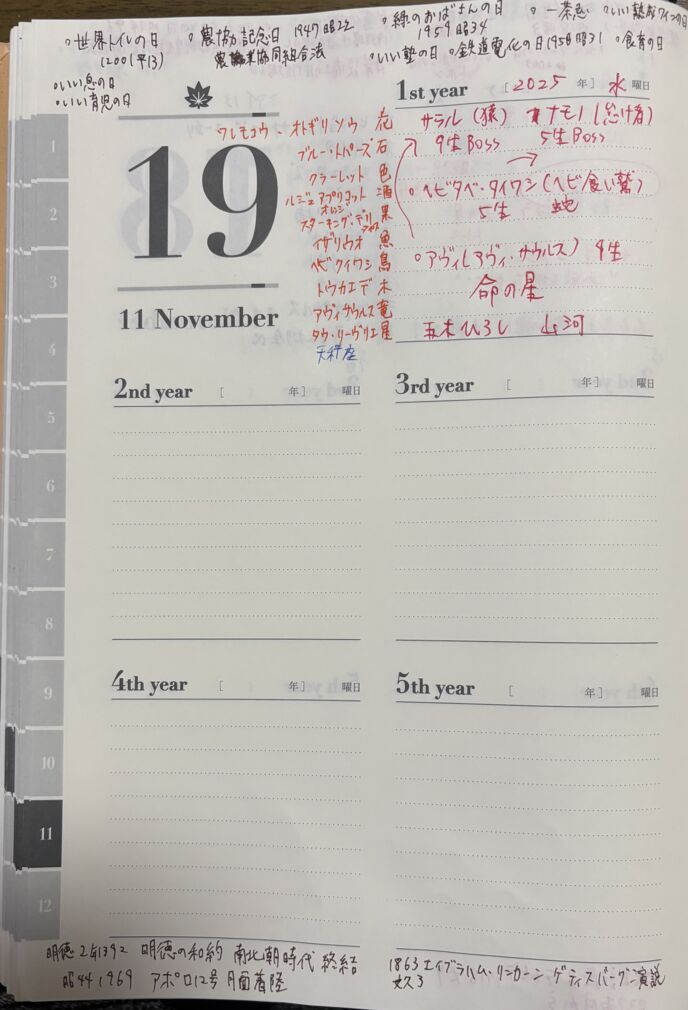 ◦世界トイレの日
(2001平13)
◦農協記念日 1947昭22
農業協同組合法
◦緑のおばさんの日
1959昭34
◦一茶忌
◦いい熟成ワインの日
◦いい塾の日
◦鉄道電化の日1956昭31
◦食育の日
◦いい息の日
◦いい育児の日
19
11 November
ワレモコウ・オトギリソウ 花
ブルー・トパーズ 石
クラーレット 色
ルジェ アプリコット オレンジ 酒
スターキング・デリシャス 果
イザリウオ 魚
ヘビクイワシ 鳥
トウカエデ 木
アヴィサウルス 竜
タウ・リーヴリエ 星
天秤座
1st year [2025 年] 水 曜日
サラル(猿) ナモノ(怠け者)
9生Boss 5生Boss
◦ヘビタベ・タイワシ(ヘビ食い鷲)
5生 蛇
◦アヴィ(アヴィ・サウルス) 9生
命の星
五木ひろし 山河
2nd year [ 年] 曜日
3rd year [ 年] 曜日
4th year [ 年] 曜日
5th year [ 年] 曜日
1
2
3
5
6
7
8
9
10
11
12
明徳2年1392 明徳の和約 南北朝時代 終結
昭44 1969 アポロ12号 月面着陸
1863 エイブラハム・リンカーン ゲティスバーグ演説
文久3